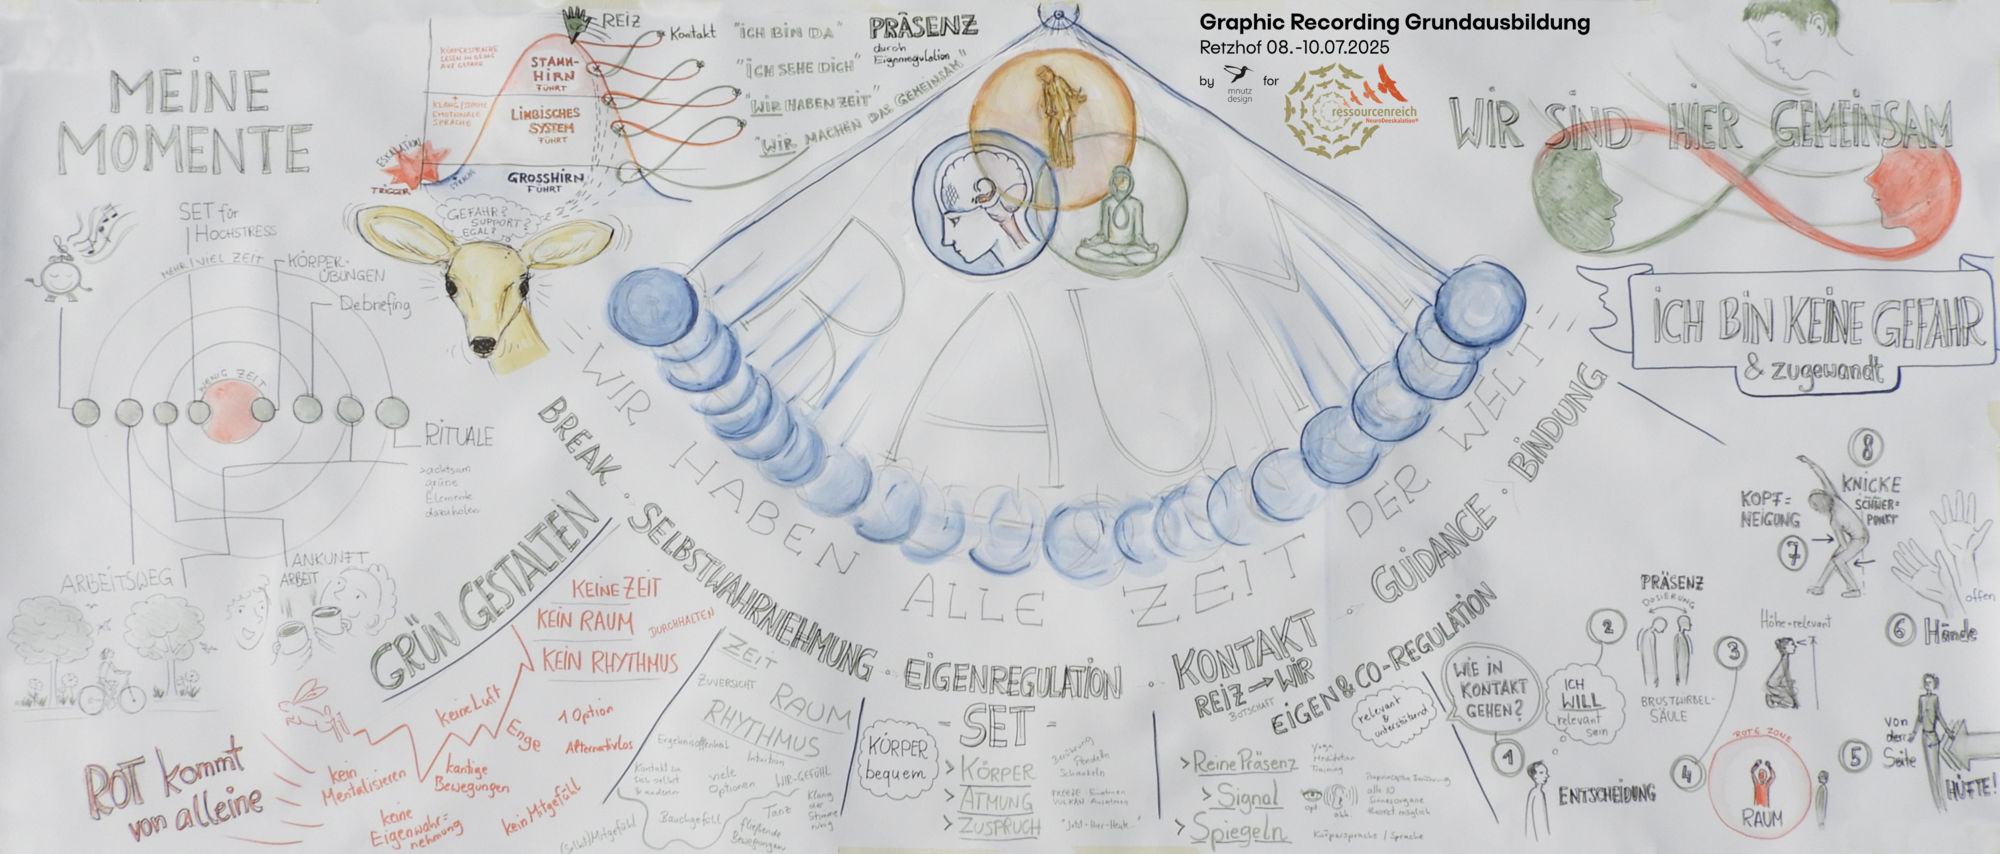 Graphic Recording Grundausbildung
Retzhof 08.-10.07.2025
by
mnutz
design
for
ressourcenreich
NeuroDeeskalation®
MEINE
MOMENTE
SET für
HOCHSTRESS
MEHR/VIEL ZEIT
KÖRPER-
ÜBUNGEN
Debriefing
WENIG ZEIT
RITUALE
>achtsam
grüne
Elemente
dazuholen
ARBEITSWEG
ANKUNFT
ARBEIT
KÖRPERSPRACHE
LESEN IN BEZUG
AUF GEFAHR
+
KLANG/STIMME
EMOTIONALE
SPRACHE
ESKALATION
TRIGGER
SPRACHE
STAMM-
HIRN
FÜHRT
LIMBISCHES
SYSTEM
FÜHRT
GROSSHIRN
FÜHRT
REIZ
Kontakt
"ICH BIN DA"
"ICH SEHE DICH"
"WIR HABEN ZEIT"
"WIR MACHEN DAS GEMEINSAM"
PRÄSENZ
durch
Eigenregulation
GEFAHR?
SUPPORT?
EGAL?
RAUM
WIR HABEN ALLE ZEIT DER WELT
BREAK · SELBSTWAHRNEHMUNG · EIGENREGULATION · KONTAKT · GUIDANCE · BINDUNG
GRÜN GESTALTEN
ROT kommt
von alleine
KEINE ZEIT
KEIN RAUM
DURCHHALTEN
KEIN RHYTHMUS
keine Luft
Enge
1 Option
Alternativlos
kein
Mentalisieren
kantige
Bewegungen
keine
Eigenwahr=
nehmung
kein Mitgefühl
ZEIT
ZUVERSICHT
RAUM
RHYTHMUS
Ergebnisoffenheit
Intuition
Kontakt zu
sich selbst
& anderen
viele
Optionen
WIR-GEFÜHL
Bauchgefühl
Tanz
Klang
der
Stimme
ruhig
fließende
Bewegungen
(Selbst)Mitgefühl
KÖRPER
bequem
- SET -
> KÖRPER
> ATMUNG
> ZUSPRUCH
Pendeln
Schaukeln
"Jetzt-Hier-Heute"
REIZ → WIR
BOTSCHAFT
EIGEN & CO-REGULATION
relevant
&
unterstützend
>Reine Präsenz
Yoga
Meditation
Training
> Signal
opt.
alle 10
Sinnesorgane
> Spiegeln
Körpersprache / Sprache
WIR SIND HIER GEMEINSAM
ICH BIN KEINE GEFAHR
& zugewandt
WIE IN
KONTAKT
GEHEN?
ICH
WILL
relevant
sein
1
ENTSCHEIDUNG
2
PRÄSENZ
DOSIERUNG
BRUSTWIRBEL-
SÄULE
3
Höhe=relevant
4
ROTE ZONE
RAUM
5
von
der
Seite
HÜFTE!
6 Hände
offen
7
KOPF=
NEIGUNG
8
KNICKE
SCHWER=
PUNKT